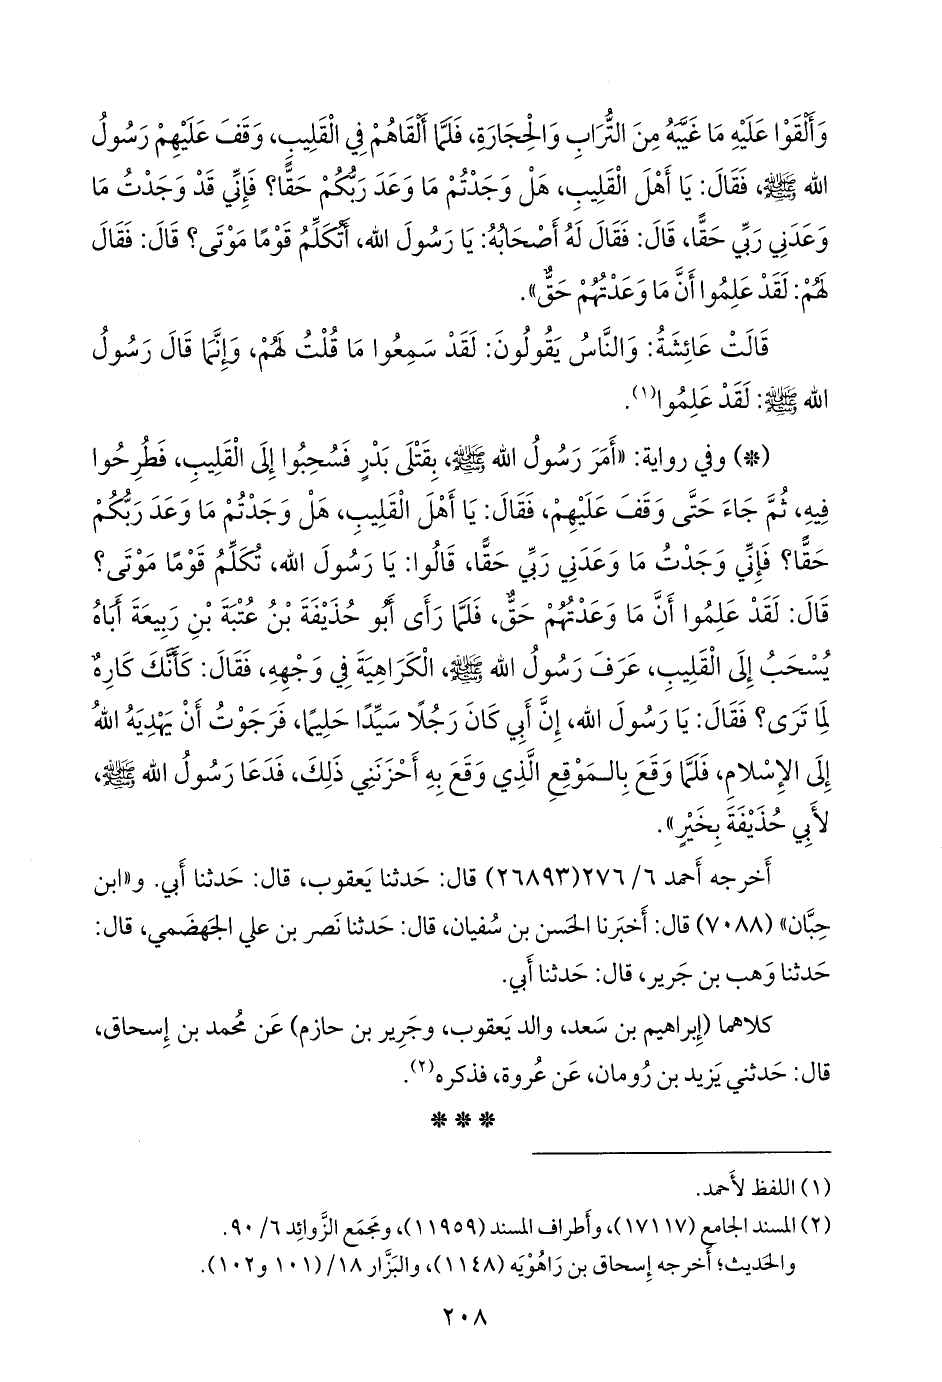 وَأَلْقَوْا عَلَيْهِ مَا غَيَّبَهُ مِنَ التُّرَابِ وَالْحِجَارَةِ، فَلَمَّا أَلْقَاهُمْ فِي الْقَلِيبِ، وَقَفَ عَلَيْهِمْ رَسُولُ
الله ﷺ، فَقَالَ: يَا أَهْلَ الْقَلِيبِ، هَلْ وَجَدْتُمْ مَا وَعَدَ رَبُّكُمْ حَقًّا؟ فَإِنِّي قَدْ وَجَدْتُ مَا
وَعَدَنِي رَبِّي حَقًّا، قَالَ: فَقَالَ لَهُ أَصْحَابُهُ: يَا رَسُولَ الله، أَتُكَلِّمُ قَوْمًا مَوْتَى؟ قَالَ: فَقَالَ
لَهُمْ: لَقَدْ عَلِمُوا أَنَّ مَا وَعَدْتُهُمْ حَقٌّ».
قَالَتْ عَائِشَةُ: وَالنَّاسُ يَقُولُونَ: لَقَدْ سَمِعُوا مَا قُلْتُ لَهُمْ، وَإِنَّمَا قَالَ رَسُولُ
الله ﷺ: لَقَدْ عَلِمُوا(١).
(*) وفي رواية: «أَمَرَ رَسُولُ الله ﷺ، بِقَتْلَى بَدْرٍ فَسُحِبُوا إِلَى الْقَلِيبِ، فَطُرِحُوا
فِيهِ، ثُمَّ جَاءَ حَتَّى وَقَفَ عَلَيْهِمْ، فَقَالَ: يَا أَهْلَ الْقَلِيبِ، هَلْ وَجَدْتُمْ مَا وَعَدَ رَبُّكُمْ
حَقًّا؟ فَإِنِّي وَجَدْتُ مَا وَعَدَنِي رَبِّي حَقًّا، قَالُوا: يَا رَسُولَ الله، تُكَلِّمُ قَوْمًا مَوْتَى؟
قَالَ: لَقَدْ عَلِمُوا أَنَّ مَا وَعَدْتُهُمْ حَقٌّ، فَلَمَّا رَأَى أَبُو حُذَيْفَةَ بْنُ عُتْبَةَ بْنِ رَبِيعَةَ أَبَاهُ
يُسْحَبُ إِلَى الْقَلِيبِ، عَرَفَ رَسُولُ الله ﷺ، الْكَرَاهِيَةَ فِي وَجْهِهِ، فَقَالَ: كَأَنَّكَ كَارِهٌ
لِمَا تَرَى؟ فَقَالَ: يَا رَسُولَ الله، إِنَّ أَبِي كَانَ رَجُلًا سَيِّدًا حَلِيمًا، فَرَجَوْتُ أَنْ يَهْدِيَهُ اللهُ
إِلَى الإِسْلامِ، فَلَمَّا وَقَعَ بِالـمَوْقِعِ الَّذِي وَقَعَ بِهِ أَحْزَنَنِي ذَلِكَ، فَدَعَا رَسُولُ الله ﷺ،
لأَبِي حُذَيْفَةَ بِخَيْرٍ».
أَخرجه أَحمد ٦/ ٢٧٦(٢٦٨٩٣) قال: حَدثنا يَعقوب، قال: حَدثنا أَبي. و«ابن
حِبَّان» (٧٠٨٨) قال: أَخبَرنا الحَسن بن سُفيان، قال: حَدثنا نَصر بن علي الجَهضَمي، قال:
حَدثنا وَهب بن جَرير، قال: حَدثنا أَبي.
كلاهما (إِبراهيم بن سَعد، والد يَعقوب، وجَرير بن حازم) عَن مُحمد بن إِسحاق،
قال: حَدثني يَزيد بن رُومان، عَن عُروة، فذكره(٢).
* * *
(١) اللفظ لأَحمد.
(٢) المسند الجامع (١٧١١٧)، وأَطراف المسند (١١٩٥٩)، ومَجمَع الزَّوائِد ٦/ ٩٠.
والحَديث؛ أَخرجه إِسحاق بن رَاهُوْيَه (١١٤٨)، والبَزَّار ١٨/ (١٠١ و١٠٢).
٢٠٨